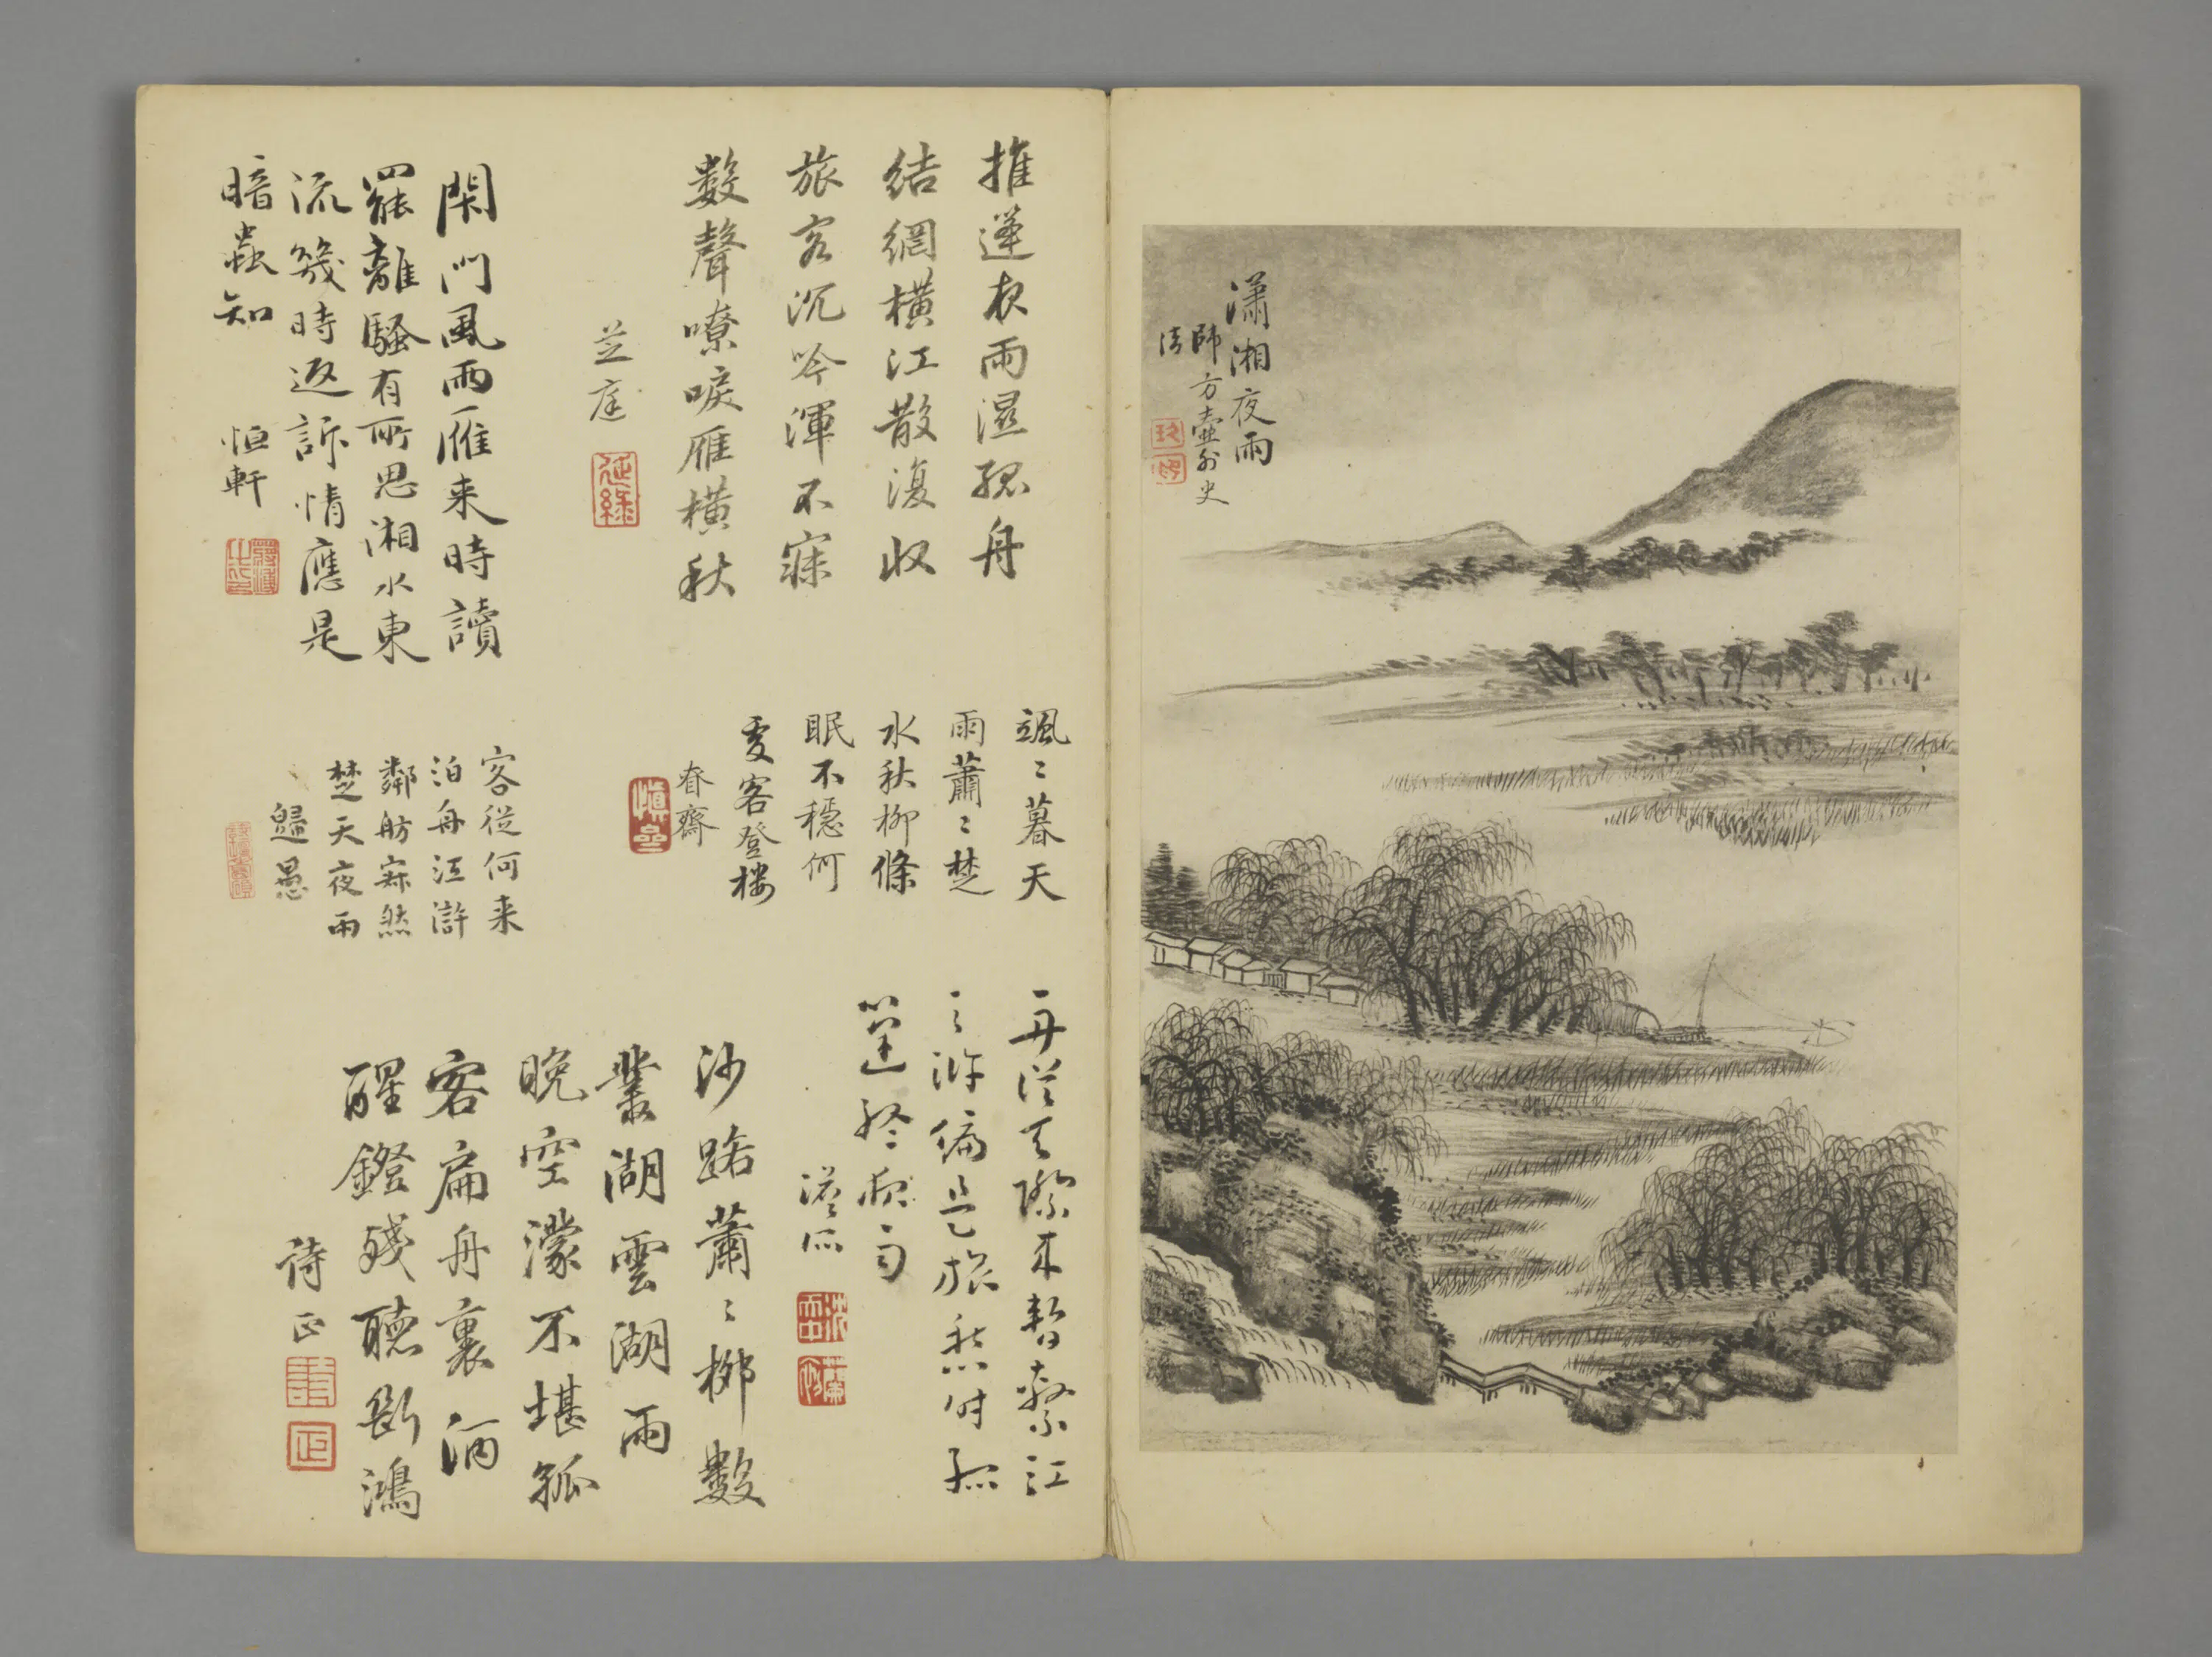 瀟湘夜雨
師方壺外史
法
推蓬夜雨濕孤舟
結網橫江散復收
旅客沉吟渾不寐
數聲嘹唳雁橫秋
芝庭
閑門風雨雁来時讀
罷離騷有所思湘水東
流幾時返訴情應是
暗蟲知
恒軒
颯〻暮天
雨蕭〻楚
水秋柳條
眠不穩何
處客登樓
春齋
客從何来
泊舟江滸
鄰舫寂然
楚天夜雨
歸愚
一舟從天際来暫繫江
之滸偏是旅愁時孤
篷聽夜雨
沙路蕭〻柳數
叢湖雲湖雨
晚空濛不堪孤
客扁舟裏酒
醒鐙殘聽斷鴻
詩正